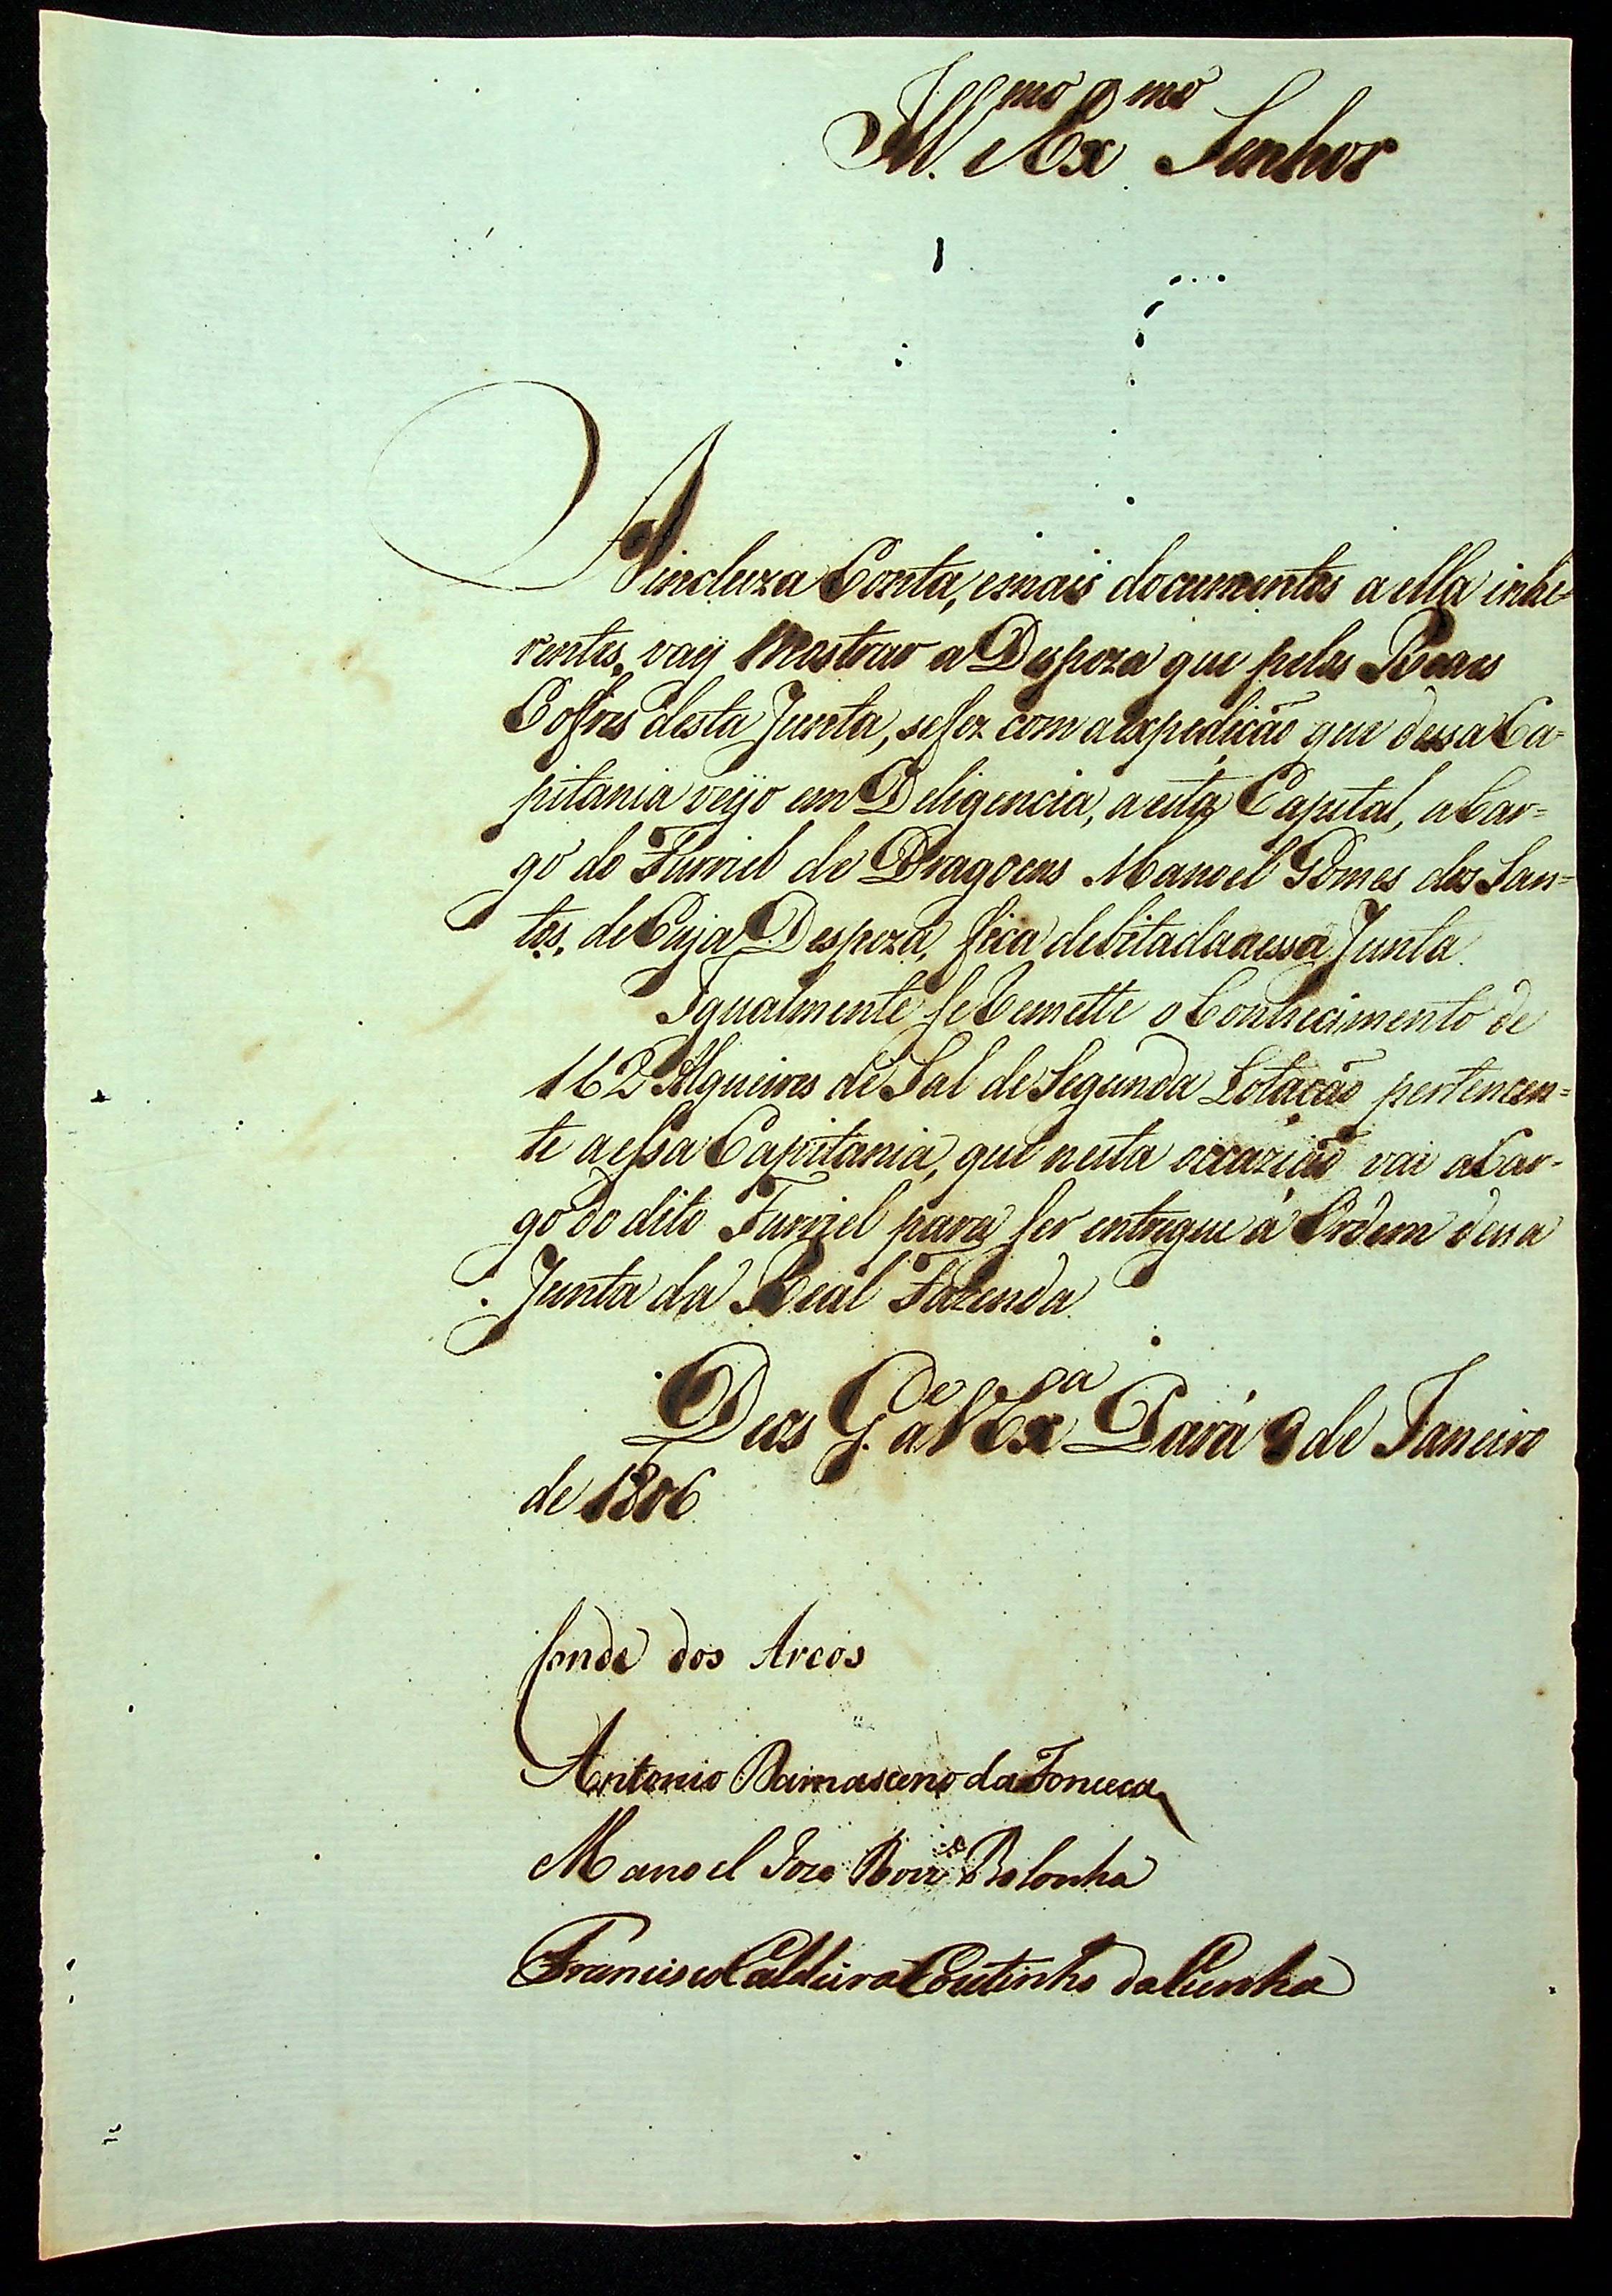 Ill.mo Ex.mo Senhor
A incluza Conta, e mais documentos a ella inhe-
rentes, vay Mostrar a Despeza que pelos Reaes
Cofres desta Junta, se fez com a expedição que dessa Ca=
pitania veyo em Deligencia, a esta Capital, a Car=
go do Furriel de Dragoens Manoel Gomes dos San=
tos, de Cuja Despeza, fica debitada nessa Junta.
Igualmente se Remette o Conhecimento de
162 Alqueires de Sal de Segunda Lotação pertencen=
te a essa Capitania, que nesta occazião vai a Car-
go do dito Furriel para ser entregue á Ordem dessa
Junta da Real Fazenda.
Deos G.de a V Ex.ca Pará 9 de Janeiro
de 1806
Conde dos Arcos
Antonio Damasceno da Fonceca
Manoel Joze Bolonha
Francisco Caldeira Coutinho da Cunha